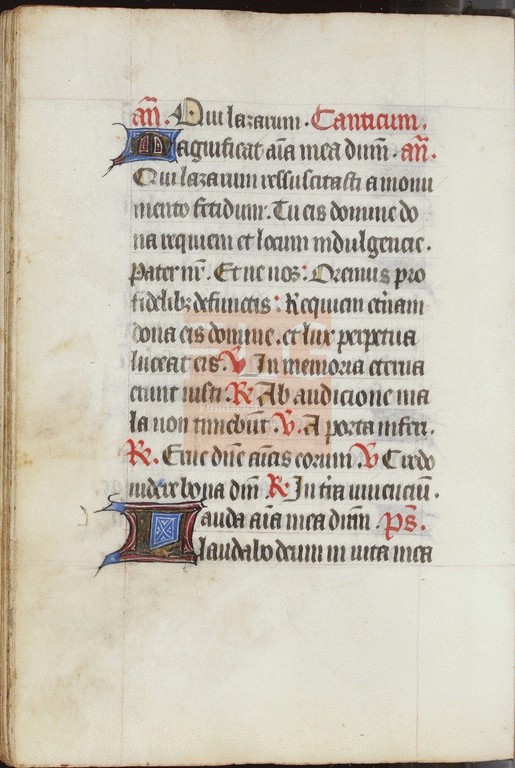 añ. Qui lazarum. Canticum.
Magnificat aīa mea dūm. añ.
Qui lazarum ressuscitasti a monu
mento fetidum. Tu eis domine do
na requiem et locum indulgencie.
Pater nr̄. Et ne nos: Oremus pro
fidelibȝ defunctis: Requiem et̄nam
dona eis domine. et lux perpetua
luceat eis. V̄ In memoria eterna
erunt iusti. R̄. Ab audicione ma
la non timebūt. V̄. A porta inferi.
R̄. Erue dn̄e aīas eorum. V̄ Credo
videre bona dīn R̄ In tr̄a viuenciū.
Lauda aīa mea dūm. p̄s.
laudabo deum in uita mea